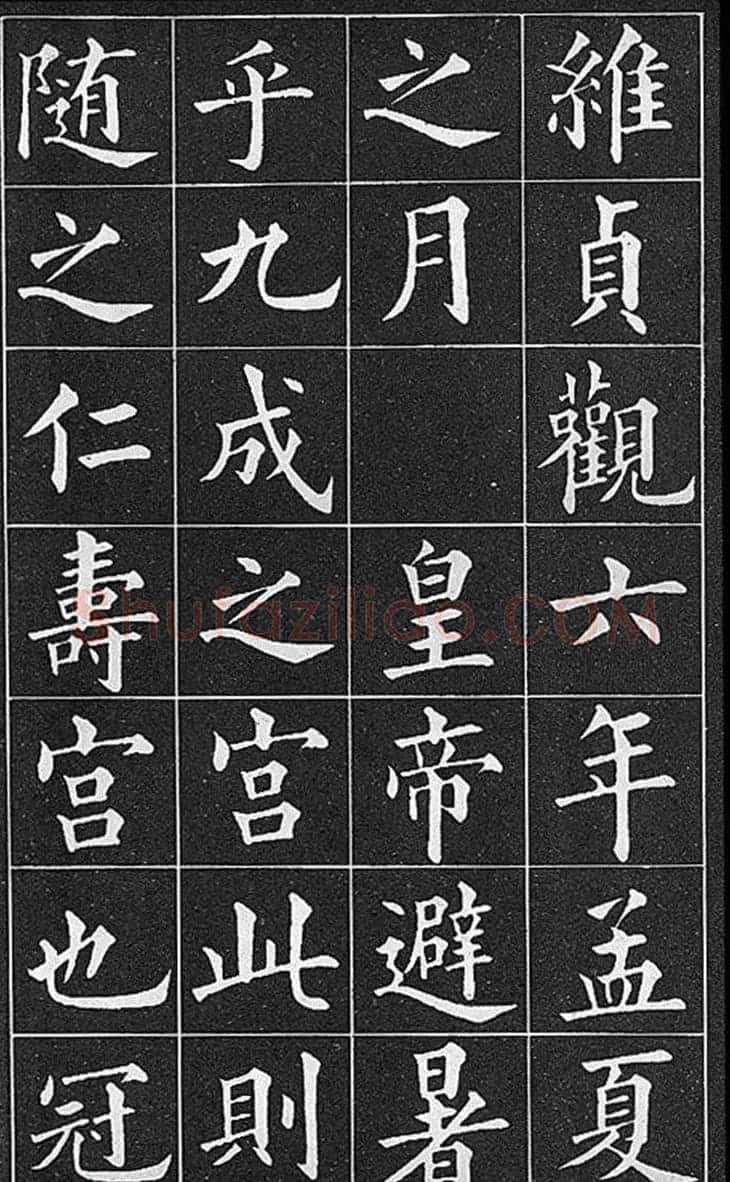 維貞觀六年孟夏
之月 皇帝避暑
乎九成之宮此則
随之仁壽宮也冠
Shufaziliao.COM